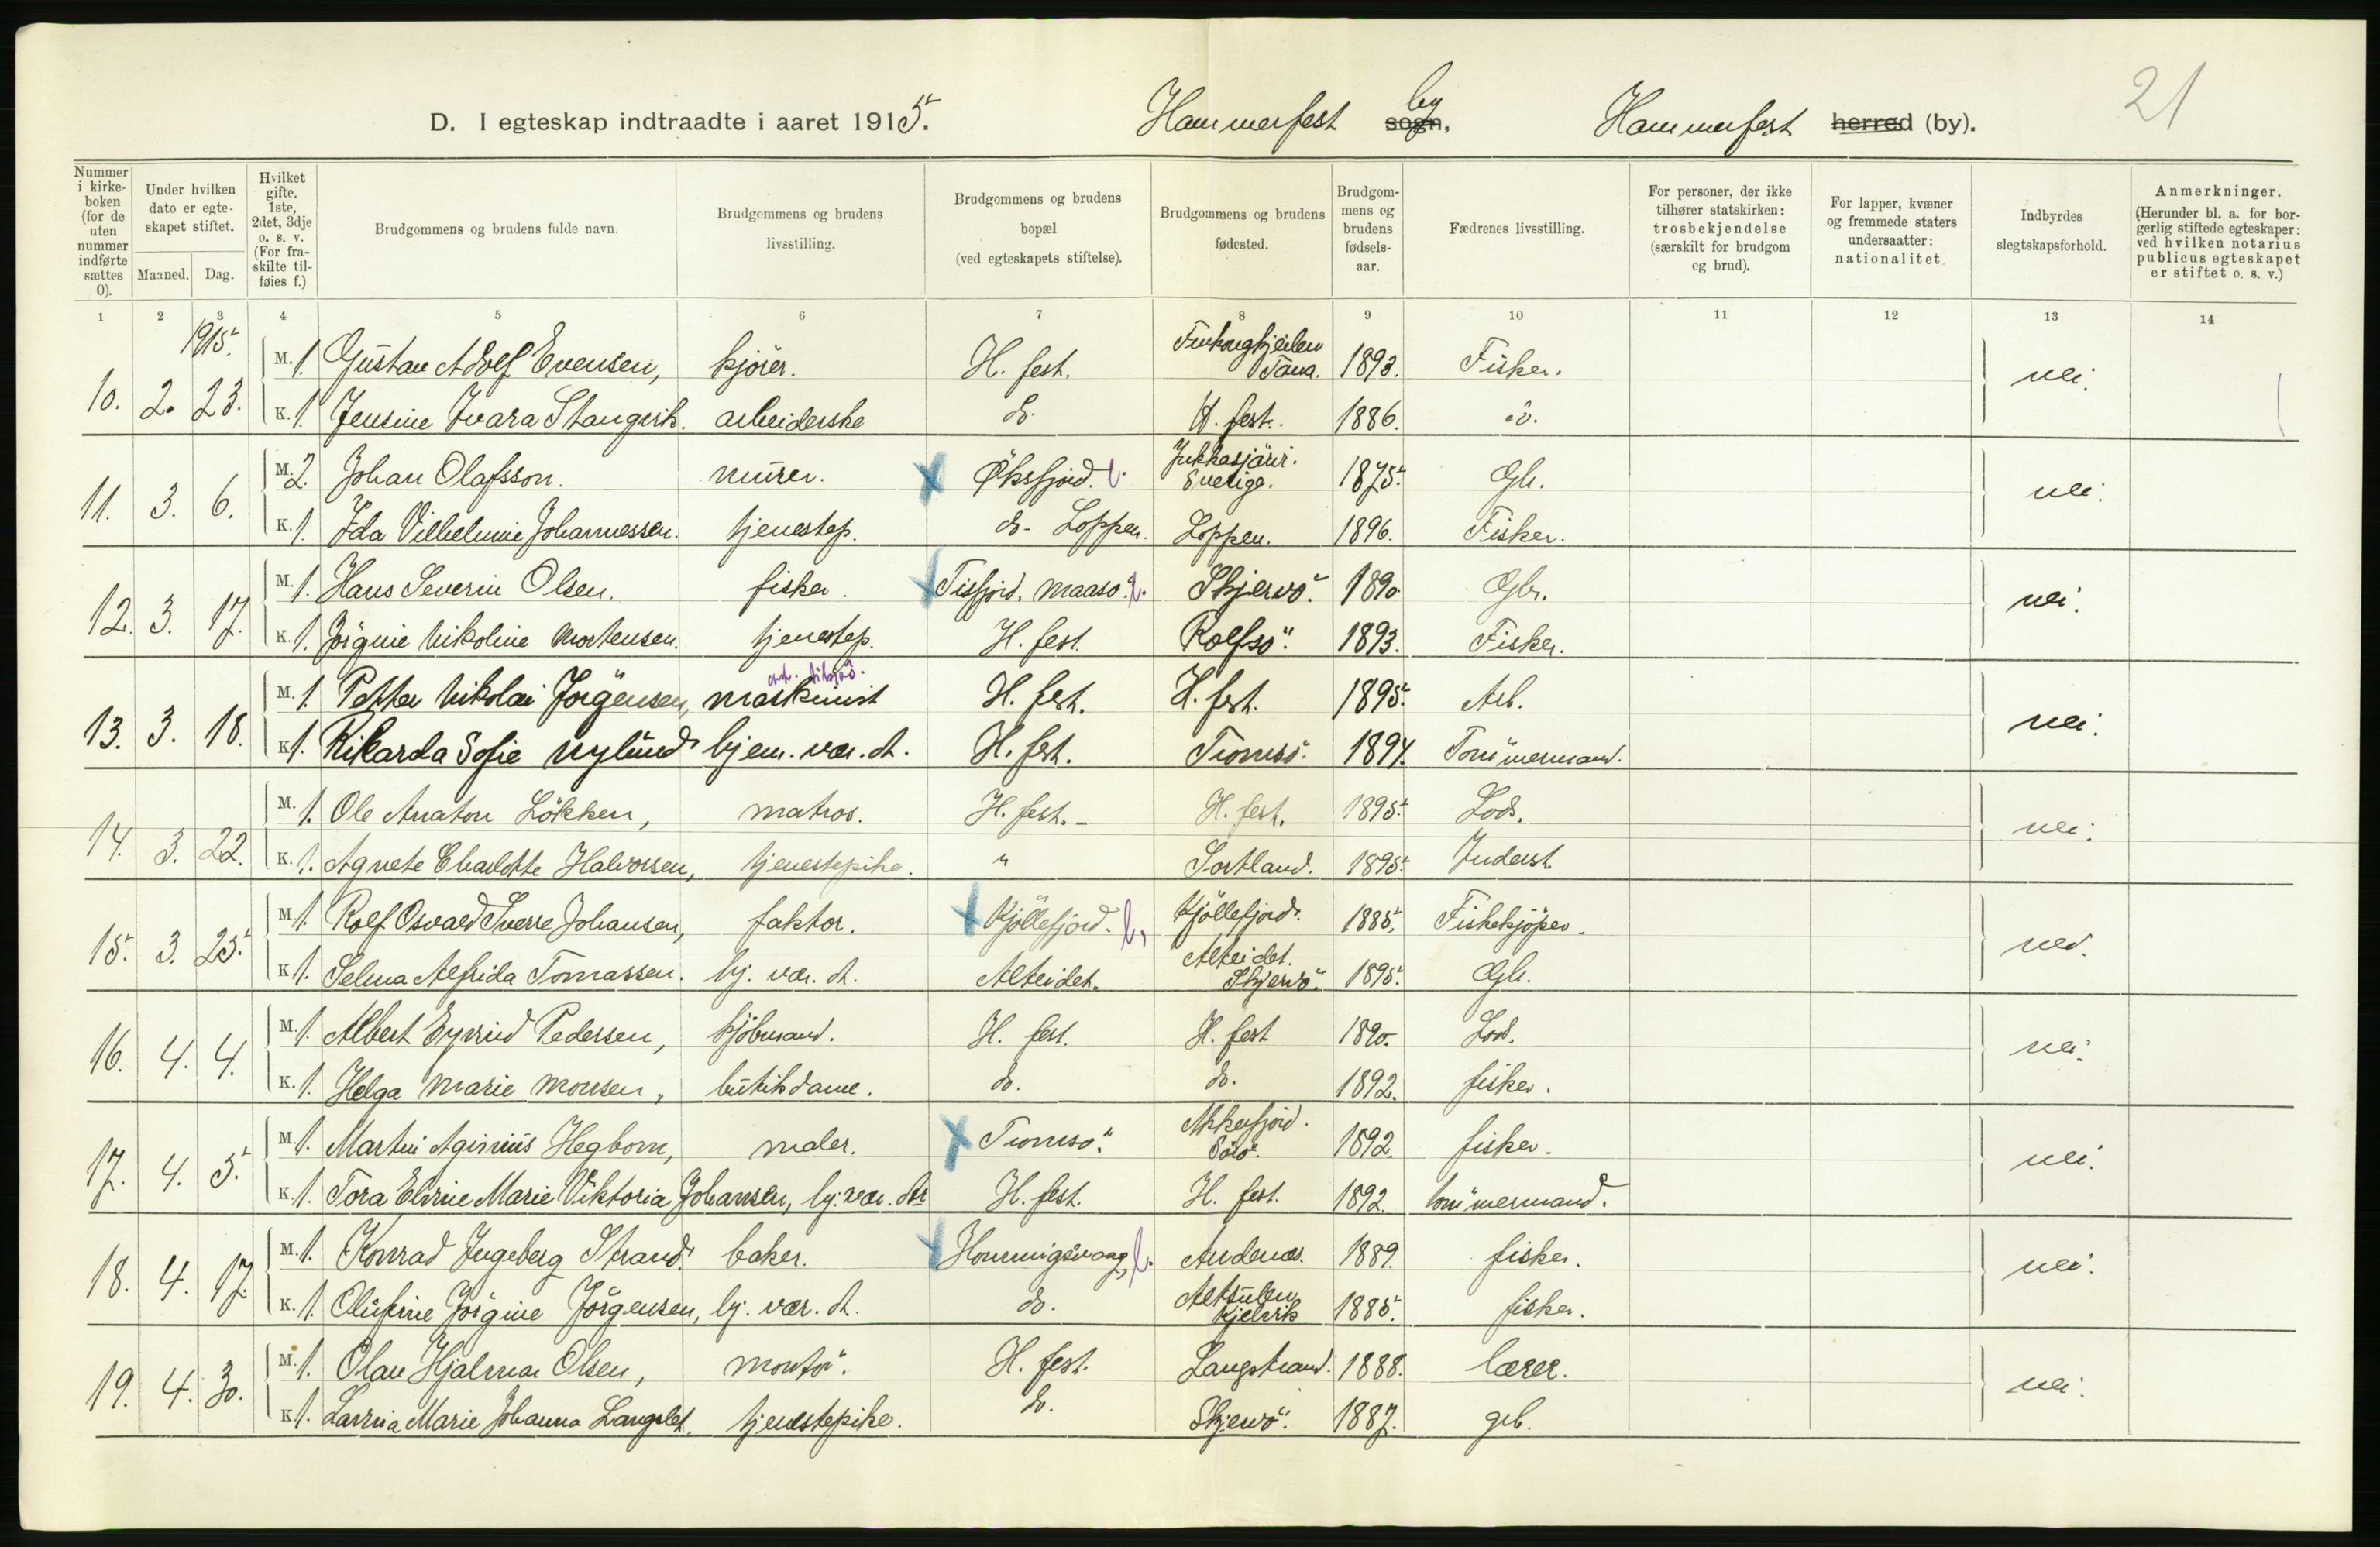 21
D. I egteskap indtraadte i aaret 1915. Hammerfest by sogn, Hammerfest herred (by).
Nummer i kirke-boken (for de uten nummer indførte sættes 0).
Under hvilken dato er egte-skapet stiftet.
Maaned. Dag.
Hvilket gifte. 1ste, 2det, 3dje o. s. v. (For fra-skilte til-føies f.)
Brudgommens og brudens fulde navn.
Brudgommens og brudens livsstilling.
Brudgommens og brudens bopæl (ved egteskapets stiftelse).
Brudgommens og brudens fødested.
Brudgom-mens og brudens fødsels-aar.
Fædrenes livsstilling.
For personer, der ikke tilhører statskirken: trosbekjendelse (særskilt for brudgom og brud).
For lapper, kvæner og fremmede staters undersaatter: nationalitet.
Indbyrdes slegtskapsforhold.
Anmerkninger. (Herunder bl. a. for bor-gerlig stiftede egteskaper: ved hvilken notarius publicus egteskapet er stiftet o. s. v.)
1 2 3 4 5 6 7 8 9 10 11 12 13 14
1915.
10. 2. 23. M. 1. Gustav Adolf Evensen, kjører. H. fest. Tana. 1893. Fisker. nei.
K. 1. Jensine Ivara Stangvik. arbeiderske do. H. fest. 1886. do.
11. 3. 6. M. 2. Johan Olafsson. murer. Øksfjord. Jukkasjärvi. Sverige. 1875. Gbr. nei.
K. 1. Ida Vilhelmine Johannessen. tjenestep. do - Loppen. Loppen. 1896. Fisker.
12. 3. 17. M. 1. Hans Severin Olsen. fisker. Tisfjord. Maasø. Skjervö. 1890 Gbr. nei.
K. 1. Jörgine Nikoline Mortensen. tjenestep. H. fest. Rolfsö. 1893. Fisker.
13. 3. 18. M. 1. Petter Nikolai Jörgensen, maskinist H. fest. H. fest. 1895. Arb. nei.
K. 1. Rikarda Sofie Nylund hjem. vær. dt. H. fest. Tromsö. 1894. Tömmermand.
14. 3. 22. M. 1. Ole Anaton Lökken, matros. H. fest. - H. fest. 1895. Lods. nei.
K. 1. Agnete Charlotte Halvorsen, tjenestepike. " Sortland. 1895. Inderst
15. 3. 25. M. 1. Rolf Osvald Sverre Johansen, faktor. Kjöllefjord. Kjöllefjord. 1885. Fiskekjöper. nei.
K. 1. Selma Alfrida Tomassen. hj. vær. dt. Alteidet. Alteidet. Skjervö. 1895. Gbr.
16. 4. 4. M. 1. Albert Eyvind Pedersen, kjöbmand. H. fest. H. fest 1890. Lods. nei.
K. 1. Helga Marie Monsen, butikdame. do. do. 1892. fisker.
17. 4. 5. M. 1. Martin Aginius Hegbom, maler. Tromsö. Akkarfjord. Sörö. 1892. fisker. nei.
K. 1. Tora Elvine Marie Viktoria Johansen, hj. vær. dtr H. fest. H. fest. 1892. tömmermand.
18. 4. 17. M. 1. Konrad Ingeberg Strand. baker. Honningsvaag, Andenæs. 1889. fisker. nei.
K. 1. Olufine Jörgine Jörgensen, hj. vær. dt. do. Altsulen Kjelvik 1885. fisker.
19. 4. 30. M. 1. Olav Hjalmar Olsen, montör. H. fest. Langstrand. 1888. lærer. nei.
K. 1. Lavrina Marie Johanna Langslet. tjenestepike. do. Skjervö. 1887. grb.